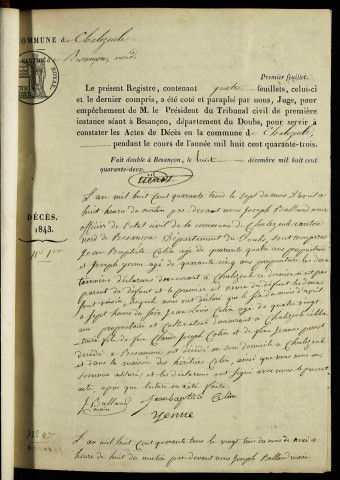 COMMUNE de Chalezeule
Besançon nord.
Premier feuillet.
Le présent Registre, contenant quatre feuillets, celui-ci
et le dernier compris, a été coté et paraphé par nous, Juge, pour
empêchement de M. le Président du Tribunal civil de première
instance séant à Besançon, département du Doubs, pour servir à
constater les Actes de Décès en la commune de Chalezeule,
pendant le cours de l'année mil huit cent quarante-trois.
Fait double à Besançon, le huit décembre mil huit cent
quarante-deux.
DÉCÈS.
1843.
N.° 1er
L'an mil huit cent quarante trois le sept du mois d'avril a
huit heure du matin par devant nous Joseph Balland maire
officier de l'état civil de la commune de Chalezeule canton
nord de Besançon Département du Doubs, sont comparus
Jean Baptiste Colin agé de quarante quatre ans propriétaire
et Joseph Yenne agé de quarante cinq ans propriétaire les deux
témoins déclarans demeurant à Chalezeule le dernier est pas
parent du défunt et le premier est
voisin, lesquels nous ont déclaré que le six du mois d'avril
a sept heures du soir Jean Louis Colin agé de quatre vingt
ans propriétaire et Cultivateur demeurant à Chalezeule
fils de feu Claude Joseph Colin et de feue Jeanne
décédé à Besançon est décédé en son domicile a Chalezeule
et dans la maison des héritiers Colin, ainsi que nous nous en
sommes assuré; et les déclarans ont signé avec nous le présent
acte, après que lecture en a été faite.
J. Balland
maire
Jean baptiste Colin
Yenne
N.° 2e
L'an mil huit cent quarante trois le vingt trois du mois de mai a
heure de huit du matin par devant nous Joseph Balland maire